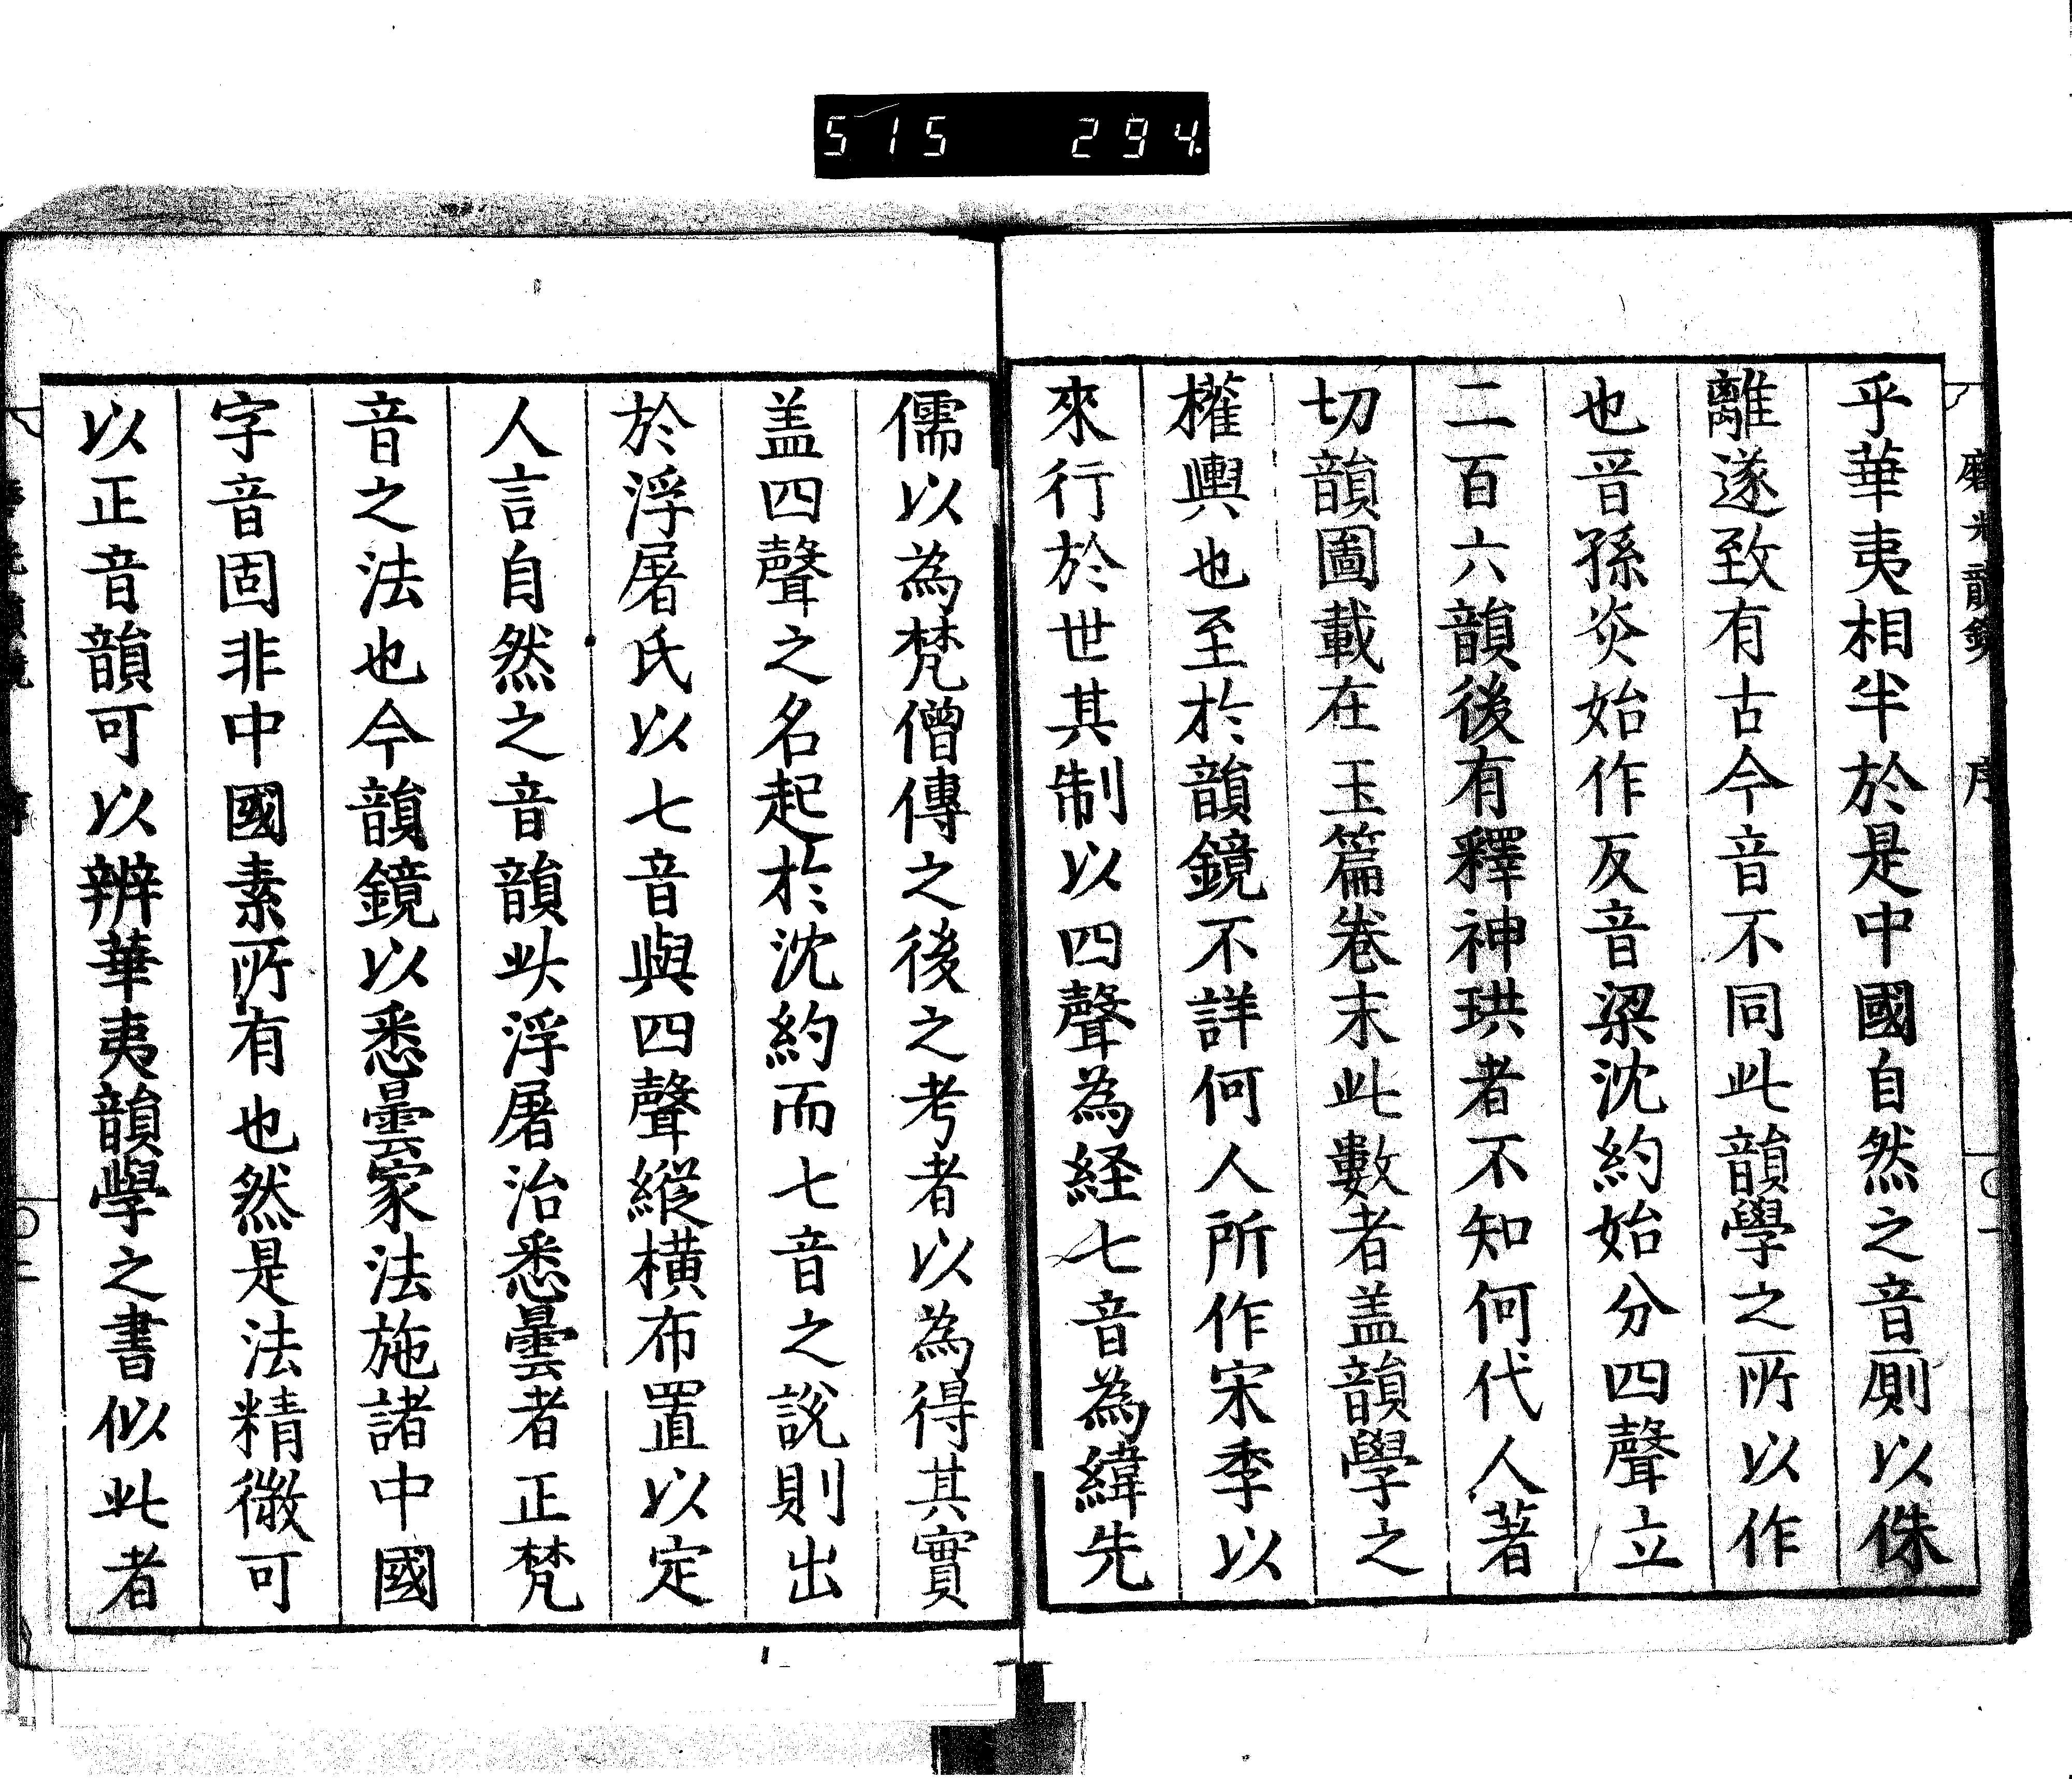 515 294
磨光韻鏡 序 〇一
乎華夷相半於是中國自然之音厠以侏
離遂致有古今音不同此韻學之所以作
也晋孫炎始作反音梁沈約始分四聲立
二百六韻後有釋神珙者不知何代人著
切韻圖載在玉篇卷末此數者盖韻學之
權輿也至於韻鏡不詳何人所作宋季以
來行於世其制以四聲為経七音為緯先
儒以為梵僧傳之後之考者以為得其實
盖四聲之名起於沈約而七音之説則出
於浮屠氏以七音與四聲縱横布置以定
人言自然之音韻此浮屠治悉曇者正梵
音之法也今韻鏡以悉曇家法施諸中國
字音固非中國素所有也然是法精微可
以正音韻可以辨華夷韻學之書似此者